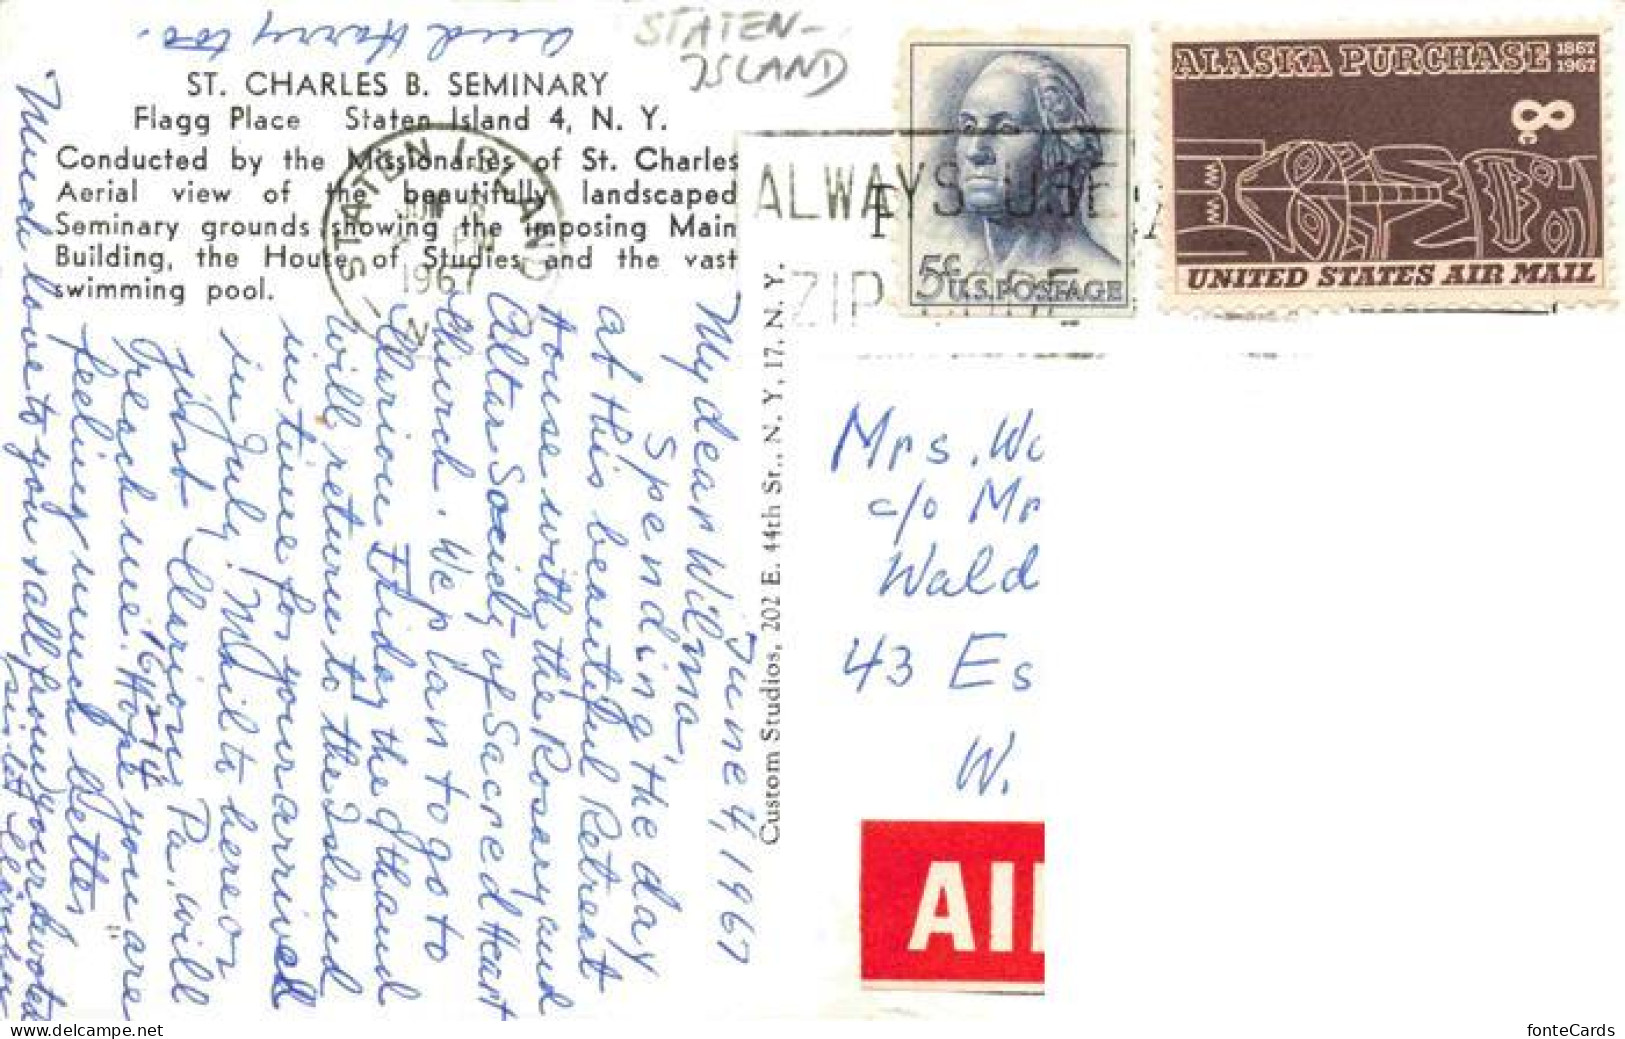 STATEN-
ISLAND
ST. CHARLES B. SEMINARY
Flagg Place Staten Island 4, N. Y.
Conducted by the Missionaries of St. Charles
Aerial view of the beautifully landscaped
Seminary grounds showing the imposing Main
Building, the House of Studies and the vast
swimming pool.
STATEN ISLAND
1967
ALWAYS USE
ZIP
5¢
U.S. POSTAGE
ALASKA PURCHASE 1867
1967
8c
UNITED STATES AIR MAIL
Custom Studios, 202 E. 44th St., N. Y. 17, N. Y.
June 4, 1967
My dear Wilma,
Spending the day
at this beautiful Retreat
House with the Rosary and
Altar Society of Sacred Heart
Church. We plan to go to
Clarion Friday the 9th and
will return to the Island
in time for your arrival
in July. Mail to here or
just Clarion, Pa. will
reach me. 16214 Hope you are
feeling much better.
Much love to you & all from your devoted
and Harry too.
Mrs. Wa
c/o Mr
Wald
43 Es
W.
AI
fonteCards